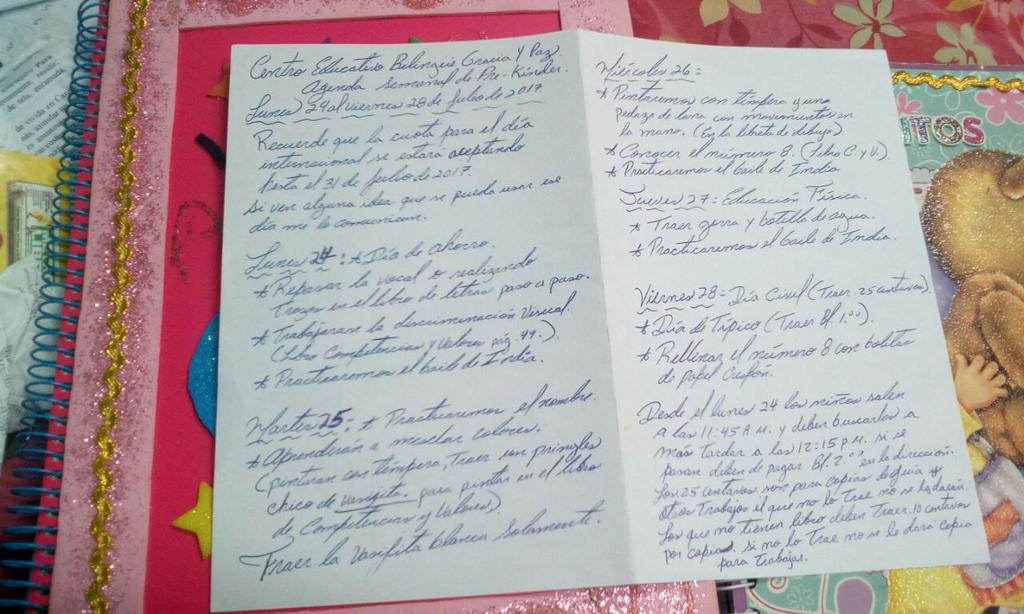 Centro Educativo Bilingüe Gracia y Paz
Agenda Semanal de Pre-Kinder.
Lunes 24 al viernes 28 de Julio de 2017
Recuerde que la cuota para el día
internacional se estará aceptando
hasta el 31 de Julio de 2017.
Si ven alguna idea que se pueda usar ese
día me lo comunican.
Lunes 24: * Día de ahorro.
* Repasar la vocal o realizando
trazos en el libro de letras paso a paso.
* Trabajaran la discriminación Visual.
(Libro Competencias y Valores pág. 49.)
* Practicaremos el baile de India.
Martes 25: * Practicaremos el nombre.
* Aprenderán a mesclar colores.
(pinturan con tempera, Traer un
chico de para pintar en el libro
de Competencias y Valores)
Traer la blanca Solamente.
Miércoles 26:
* Pintaremos con témpera y un
pedazo de lana con movimientos en
la mano. (En la libreta de dibujo)
* Conocer el número 8. (Libro C. y V.)
* Practicaremos el baile de India
Jueves 27: Educación Física.
* Traer gorra y botella de agua.
* Practicaremos el baile de India.
Viernes 28: Día Civil (Traer .25 centavos).
* Día de Típico (Traer Bl. 1.00).
* Rellenar el número 8 con bolitas
de papel Crespón.
Desde el lunes 24 los niños salen
A las 11:45 A.M. y deben buscarlos a
más Tardar a las 12:15 p.m. si se
pasan deben de pagar Bl. 2.00 en la dirección.
Los .25 centavos son para copias de guía y
otros Trabajos el que no lo Trae no se la darán.
Los que no tienen libro deben Traer .10 centavos
por copias, si no lo trae no se le dará Copia
para Trabajar.
TOS